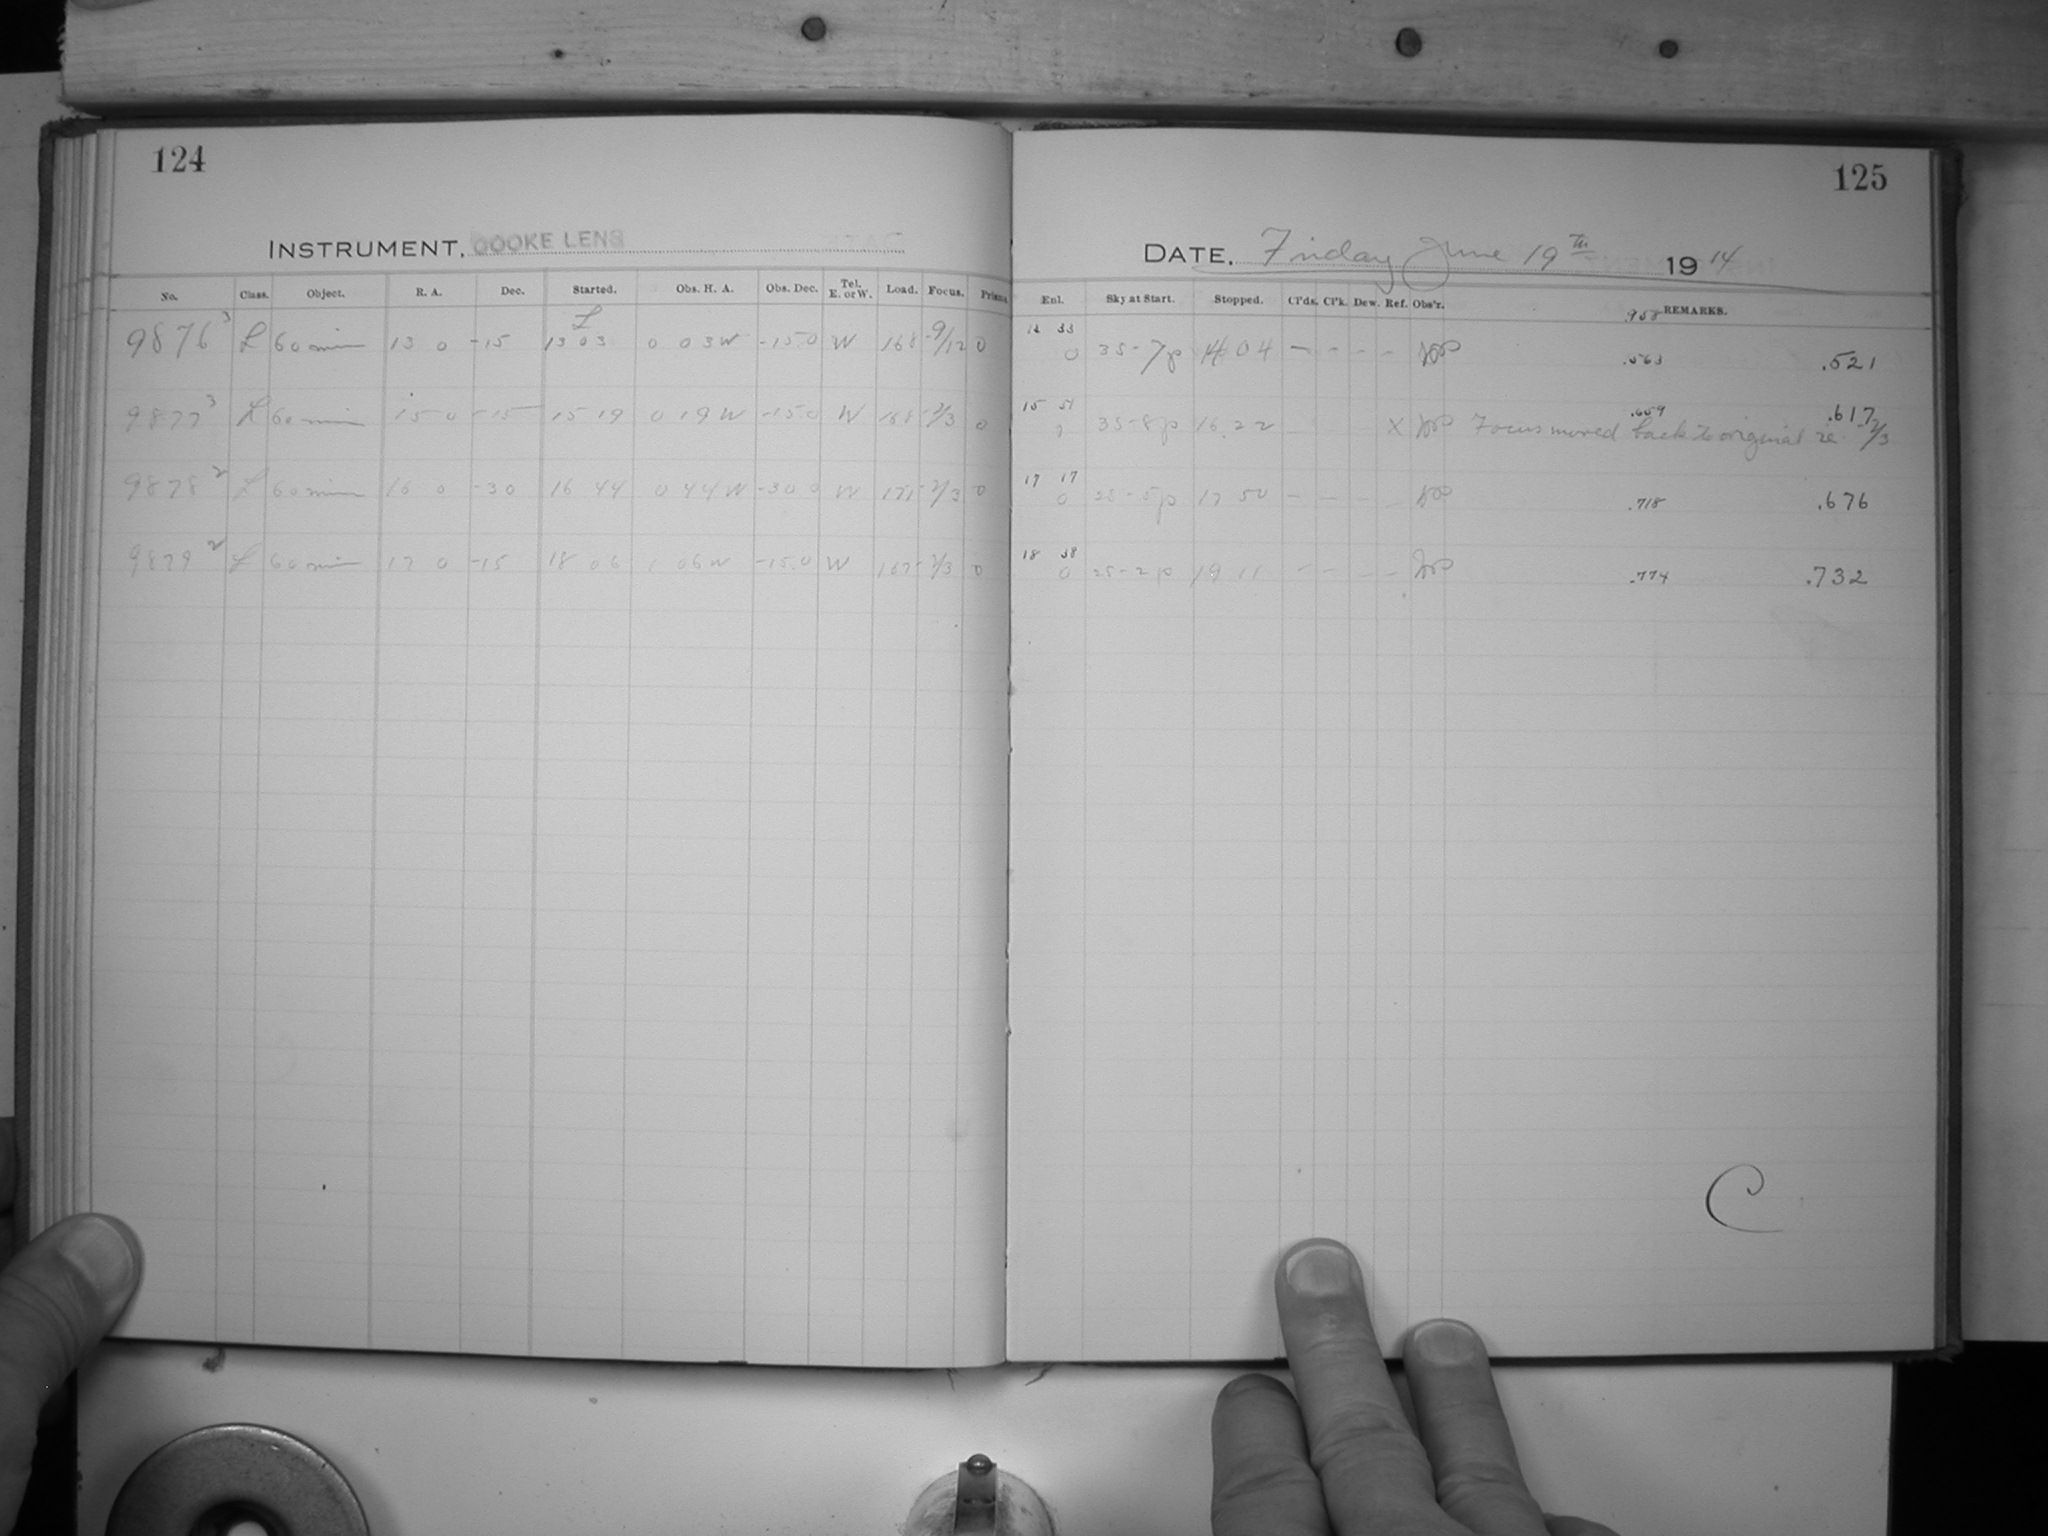 124
INSTRUMENT. COOKE LENS
No. Class. Object. R. A. Dec. Started. Obs. H. A. Obs. Dec. Tel. E. or W. Load. Focus. Prisms
9876 3 L 60 min 13 0 -15 13 03 0 03 W -15.0 W 168 -9/12 0
9877 3 L 60 min 15 0 -15 15 19 0 19 W -15.0 W 168 -2/3 0
9878 2 L 60 min 16 0 -30 16 44 0 44 W -30 0 W 171 -2/3 0
9879 2 L 60 min 17 0 -15 18 06 1 06 W -15.0 W 167 -2/3 0
125
DATE. Friday June 19th 1914
Enl. Sky at Start. Stopped. Cl'ds. Cl'k. Dew. Ref. Obs'r. REMARKS.
.958
33
0 35-7p 14 04 - - - - .563 .521
15 51 .659 .617
35-8p 16 22 X Focus moved back to original ie -2/3
17 17
0 17 50 - - .718 .676
18 38
0 25-2p 19 11 - - - - .774 .732
C